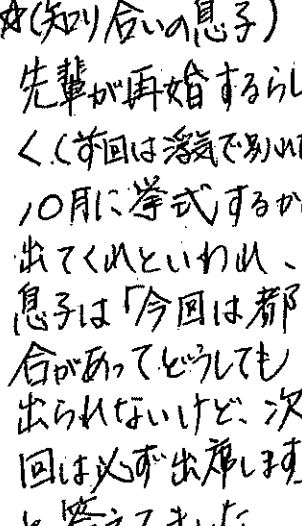 ☆(知り合いの息子)
先輩が再婚するらし
く、(前回は浮気で別れた
10月に挙式するか
出てくれといわれ、
息子は「今回は都
合があってどうしても
出られないけど、次
回は必ず出席します
と答えてました